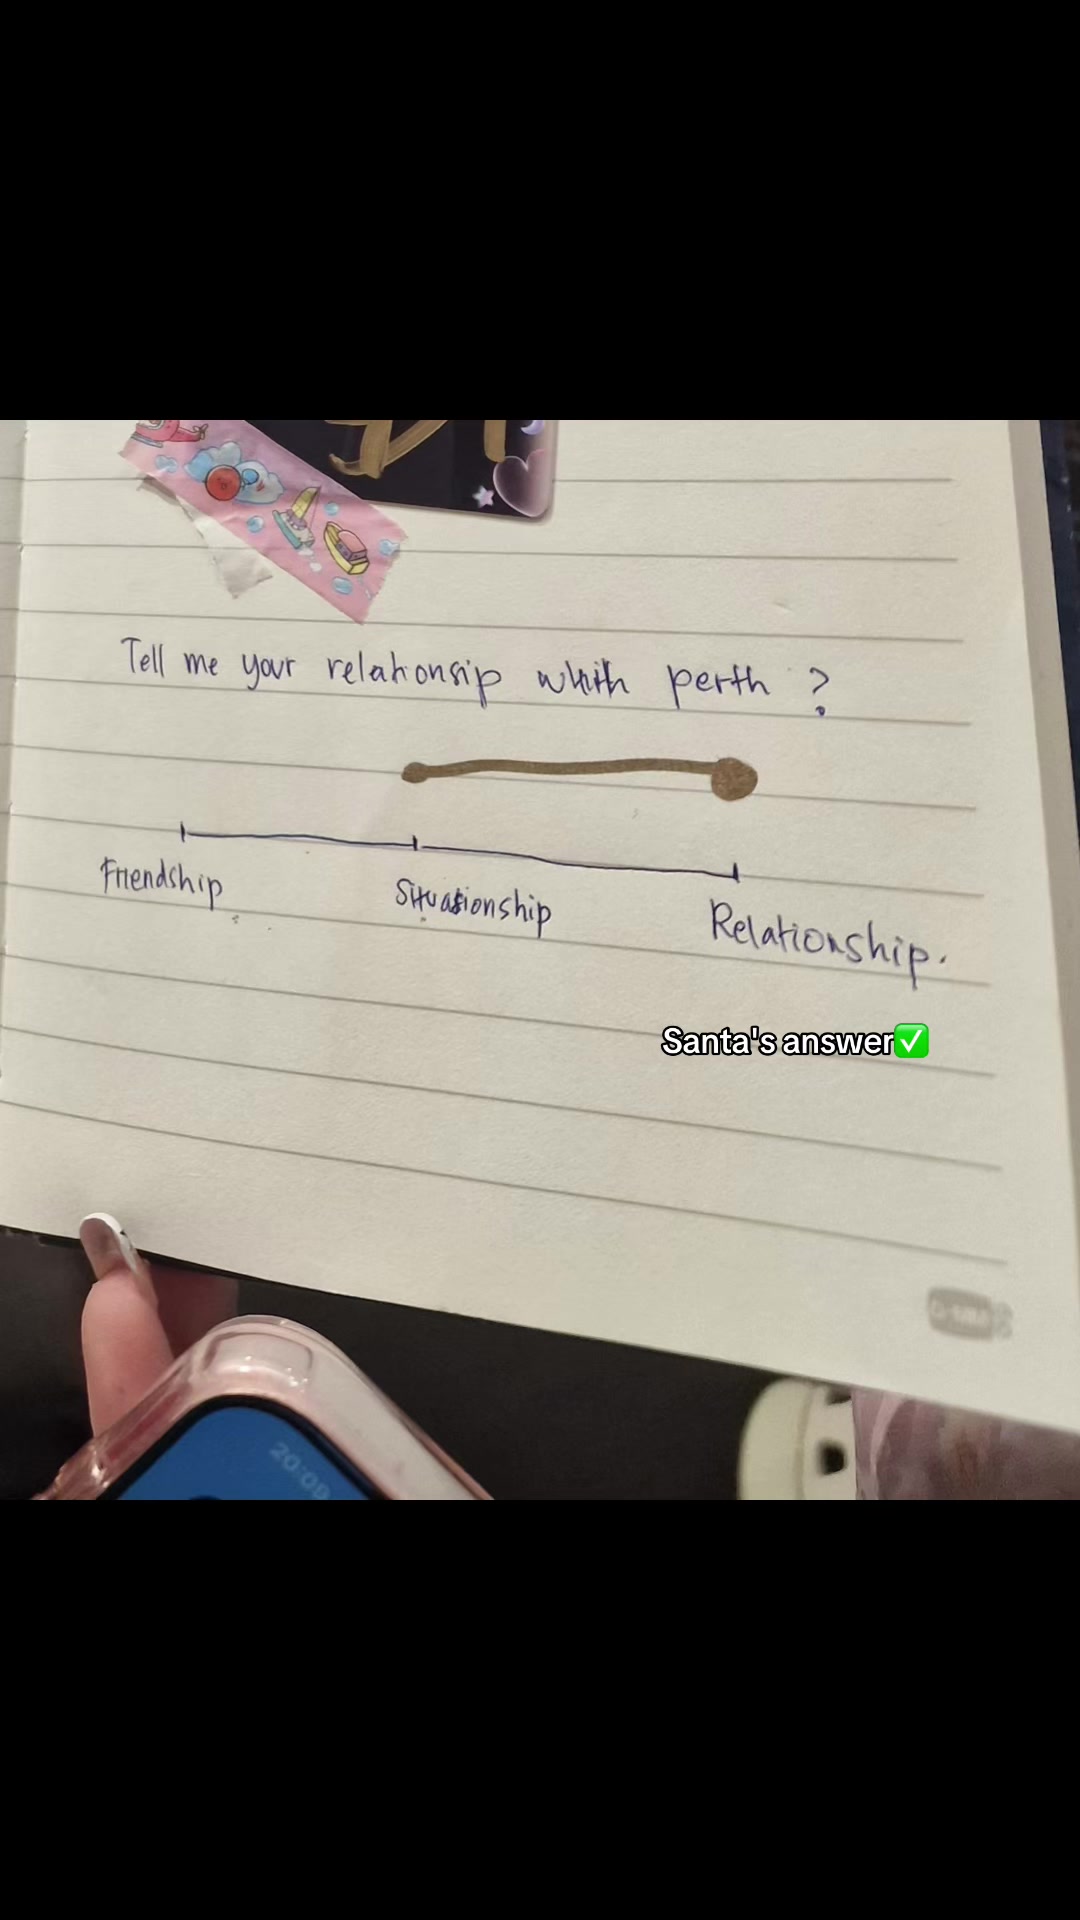 Tell me your relationsip whith perth ?
Friendship
Situationship
Relationship.
Santa's answer✅
20:09